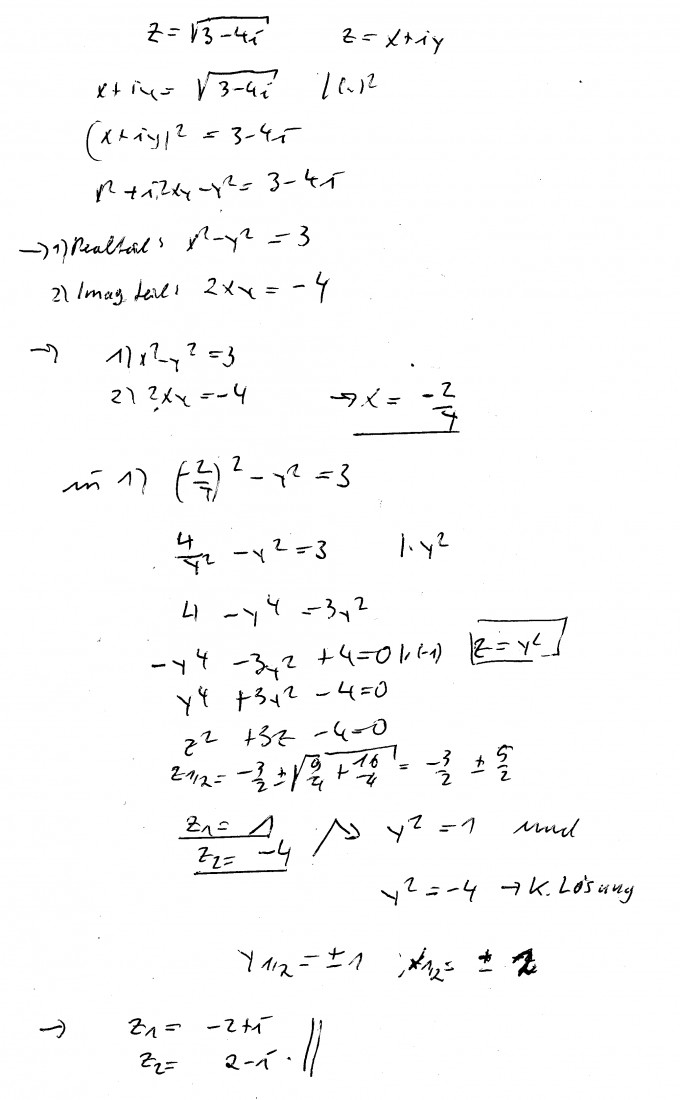 z = √(3-4i) z = x+iy
x+iy = √(3-4i) |(..)²
(x+iy)² = 3-4i
x² + i2xy - y² = 3-4i
→ 1) Realteil: x²-y² = 3
2) Imag teil: 2xy = -4
→ 1) x²-y² = 3
2) 2xy = -4 → x = -2/y
in 1) (-2/y)² - y² = 3
4/y² - y² = 3 |·y²
4 - y⁴ = 3y²
-y⁴ - 3y² + 4 = 0 |·(-1) z = y²
y⁴ + 3y² - 4 = 0
z² + 3z - 4 = 0
z1/2 = -3/2 ± √(9/4 + 16/4) = -3/2 ± 5/2
z1 = 1 → y² = 1 und
z2 = -4
y² = -4 → k. Lösung
y1/2 = ±1 ; x1/2 = ± 2
→ z1 = -2+i
z2 = 2-i.